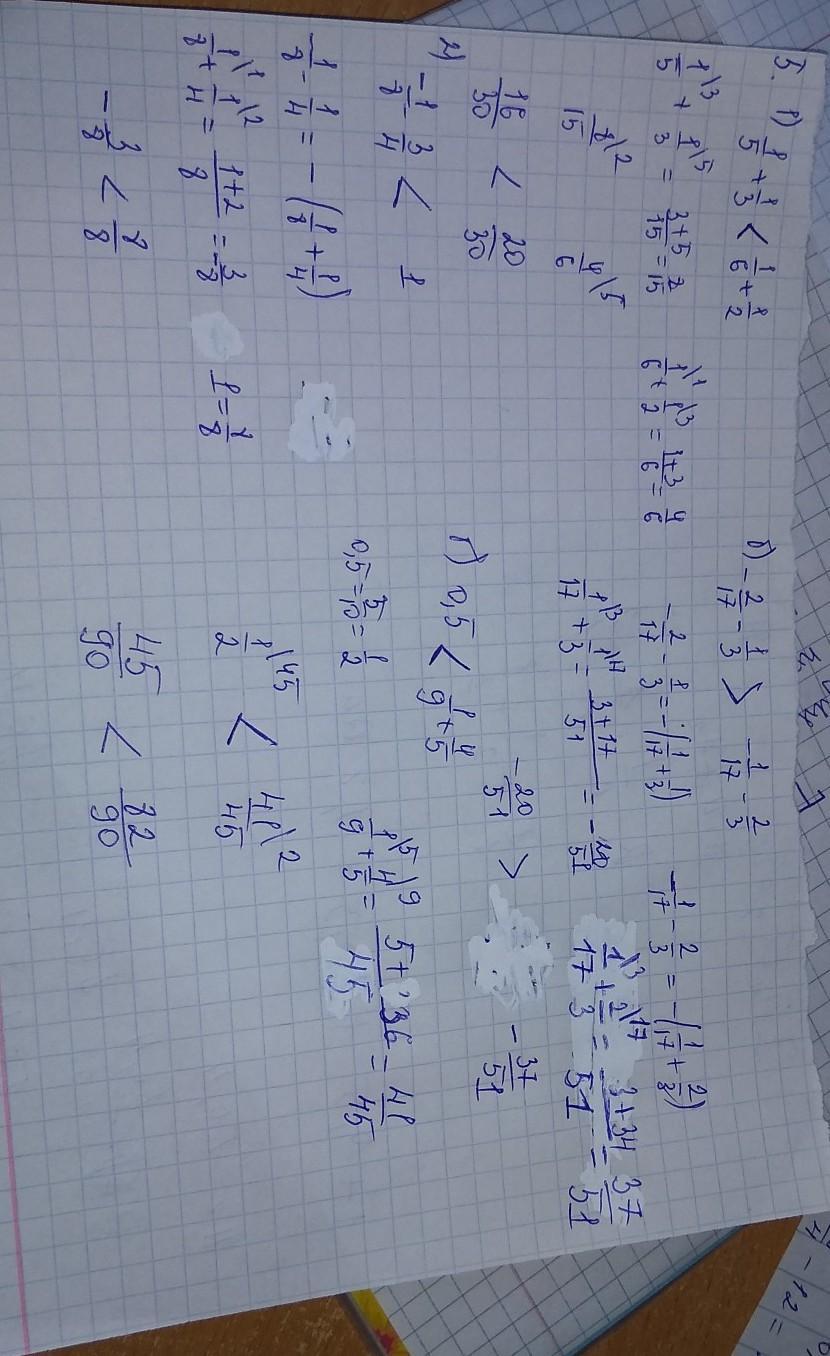 5. 1) 1/5 + 1/3 < 1/6 + 1/2
1\3/5 + 1\5/3 = 3+5/15 = 8/15
1\1/6 + 1\3/2 = 1+3/6 = 4/6
8\2/15   4\5/6
16/30 < 20/30
2) -1/8 - 3/4 < 1
1/8 - 1/4 = - (1/8 + 1/4)
1\1/8 + 1\2/4 = 1+2/8 = -3/8   1 = 8/8
- 3/8 < 8/8
б) - 2/17 - 1/3 > - 1/17 - 2/3
- 2/17 - 1/3 = - (1/17 + 1/3)
- 1/17 - 2/3 = - (1/17 + 2/3)
1\3/17 + 1\17/3 = 3+17/51 = - 20/51
1\3/17 + 2\17/3 = 3+34/51 = 37/51
- 20/51 > - 37/51
г) 0,5 < 1/9 + 4/5
0,5 = 5/10 = 1/2
1\5/9 + 4\9/5 = 5+36/45 = 41/45
1\45/2 < 41\2/45
45/90 < 82/90